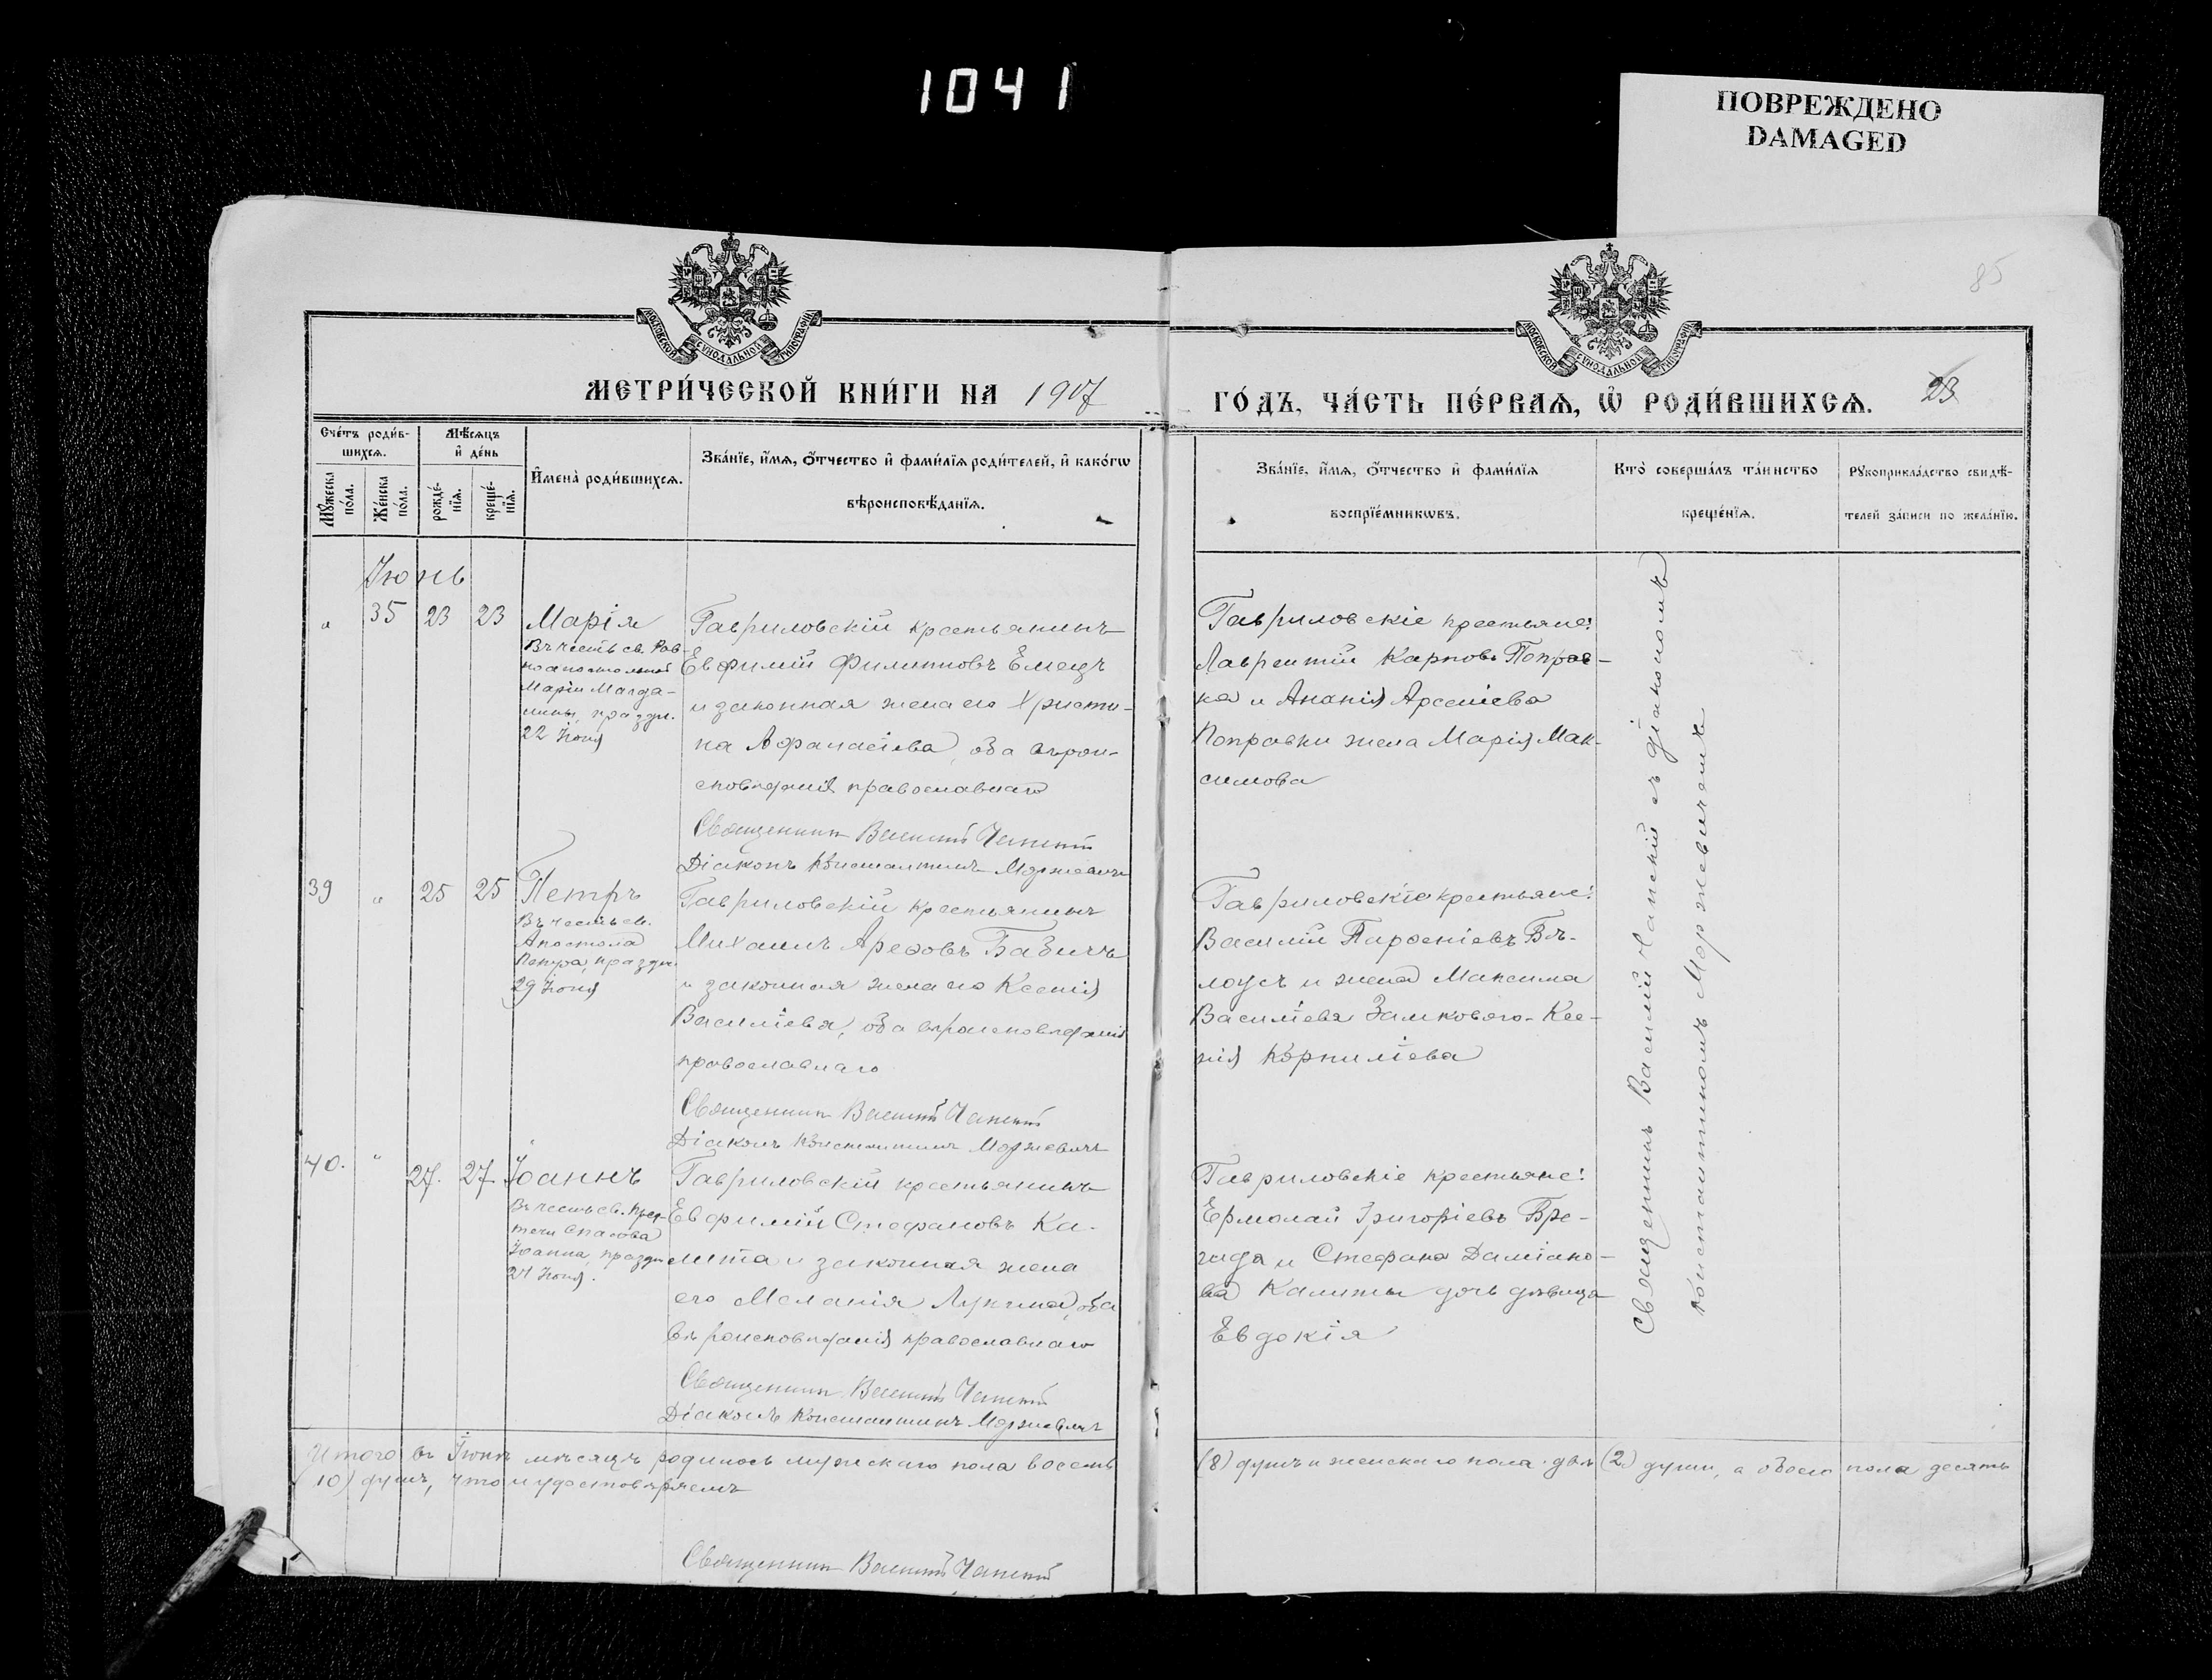 1041
ПОВРЕЖДЕНО
DAMAGED
85
МОСКОВСКОЙ СѴНОДАЛЬНОЙ ТИПОГРАФІИ
МОСКОВСКОЙ СѴНОДАЛЬНОЙ ТИПОГРАФІИ
МЕТРИ́ЧЕСКОЙ КНИ́ГИ НА 1907
ГО́ДЪ, ЧА́СТЬ ПЕ́РВАѦ, Ѡ҆ РОДИ́ВШИХСѦ.
23
Сче́тъ роди́в-
шихсѧ.
Мꙋ́жеска
по́ла.
Же́нска
по́ла.
Мѣ́сѧцъ
и҆ де́нь
рожде́-
нїѧ.
креще́-
нїѧ.
И҆мена̀ роди́вшихсѧ.
Зва́нїе, и҆́мѧ, ѻ҆́тчество и҆ фами́лїѧ роди́телей, и҆ како́гѡ
вѣроисповѣ́данїѧ.
Зва́нїе, и҆́мѧ, ѻ҆́тчество и҆ фами́лїѧ
воспрїе́мникѡвъ.
Кто̀ соверша́лъ та́инство
креще́нїѧ.
Рꙋкоприкла́дство свидѣ́-
телей за́писи по жела́нїю.
Іюнь
" 35 23 23 Марія
Въ честь св. Рав-
ноапостольной
Маріи Магда-
лины, праздн.
22 Іюля
Гавриловскій крестьянинъ
Евфимій Филипповъ Емецъ
и законная жена его Христи-
на Афанасіева, оба вѣрои-
сповѣданія православнаго
Священникъ Василій Чапскій
Діаконъ Константинъ Моржевичъ
Гавриловскіе крестьяне:
Лаврентій Карповъ Поправ-
ка и Ананія Арсеніева
Поправки жена Марія Мак-
симова
39 " 25 25 Петръ
Въ честь св.
Апостола
Петра, праздн.
29 Іюня
Гавриловскій крестьянинъ
Михаилъ Арефовъ Бабичъ
и законная жена его Ксенія
Василіева, оба вѣроисповѣданія
православнаго
Священникъ Василій Чапскій
Діаконъ Константинъ Моржевичъ
Гавриловскіе крестьяне:
Василій Парфеніевъ Бѣ-
лоусъ и жена Максима
Василіева Замкового - Ксе-
нія Корниліева
40. " 27. 27 Іоаннъ
Въ честь св. Пред-
течи Спасова
Іоанна, праздн.
24 Іюня.
Гавриловскій крестьянинъ
Евфимій Стефановъ Ка-
лита и законная жена
его Меланія Лукина, оба
вѣроисповѣданія православнаго
Священникъ Василій Чапскій
Діаконъ Константинъ Моржевичъ
Гавриловскіе крестьяне:
Ермолай Григоріевъ Бре-
гида и Стефана Даміано-
ва Калиты дочь дѣвица
Евдокія
Священникъ Василій Чапскій съ діакономъ
Константиномъ Моржевичемъ
Итого въ Іюнѣ мѣсяцѣ родилось мужскаго пола восемь (8) душъ и женскаго пола двѣ (2) души, а обоего пола десять
(10) душъ, что и удостовѣряемъ
Священникъ Василій Чапскій